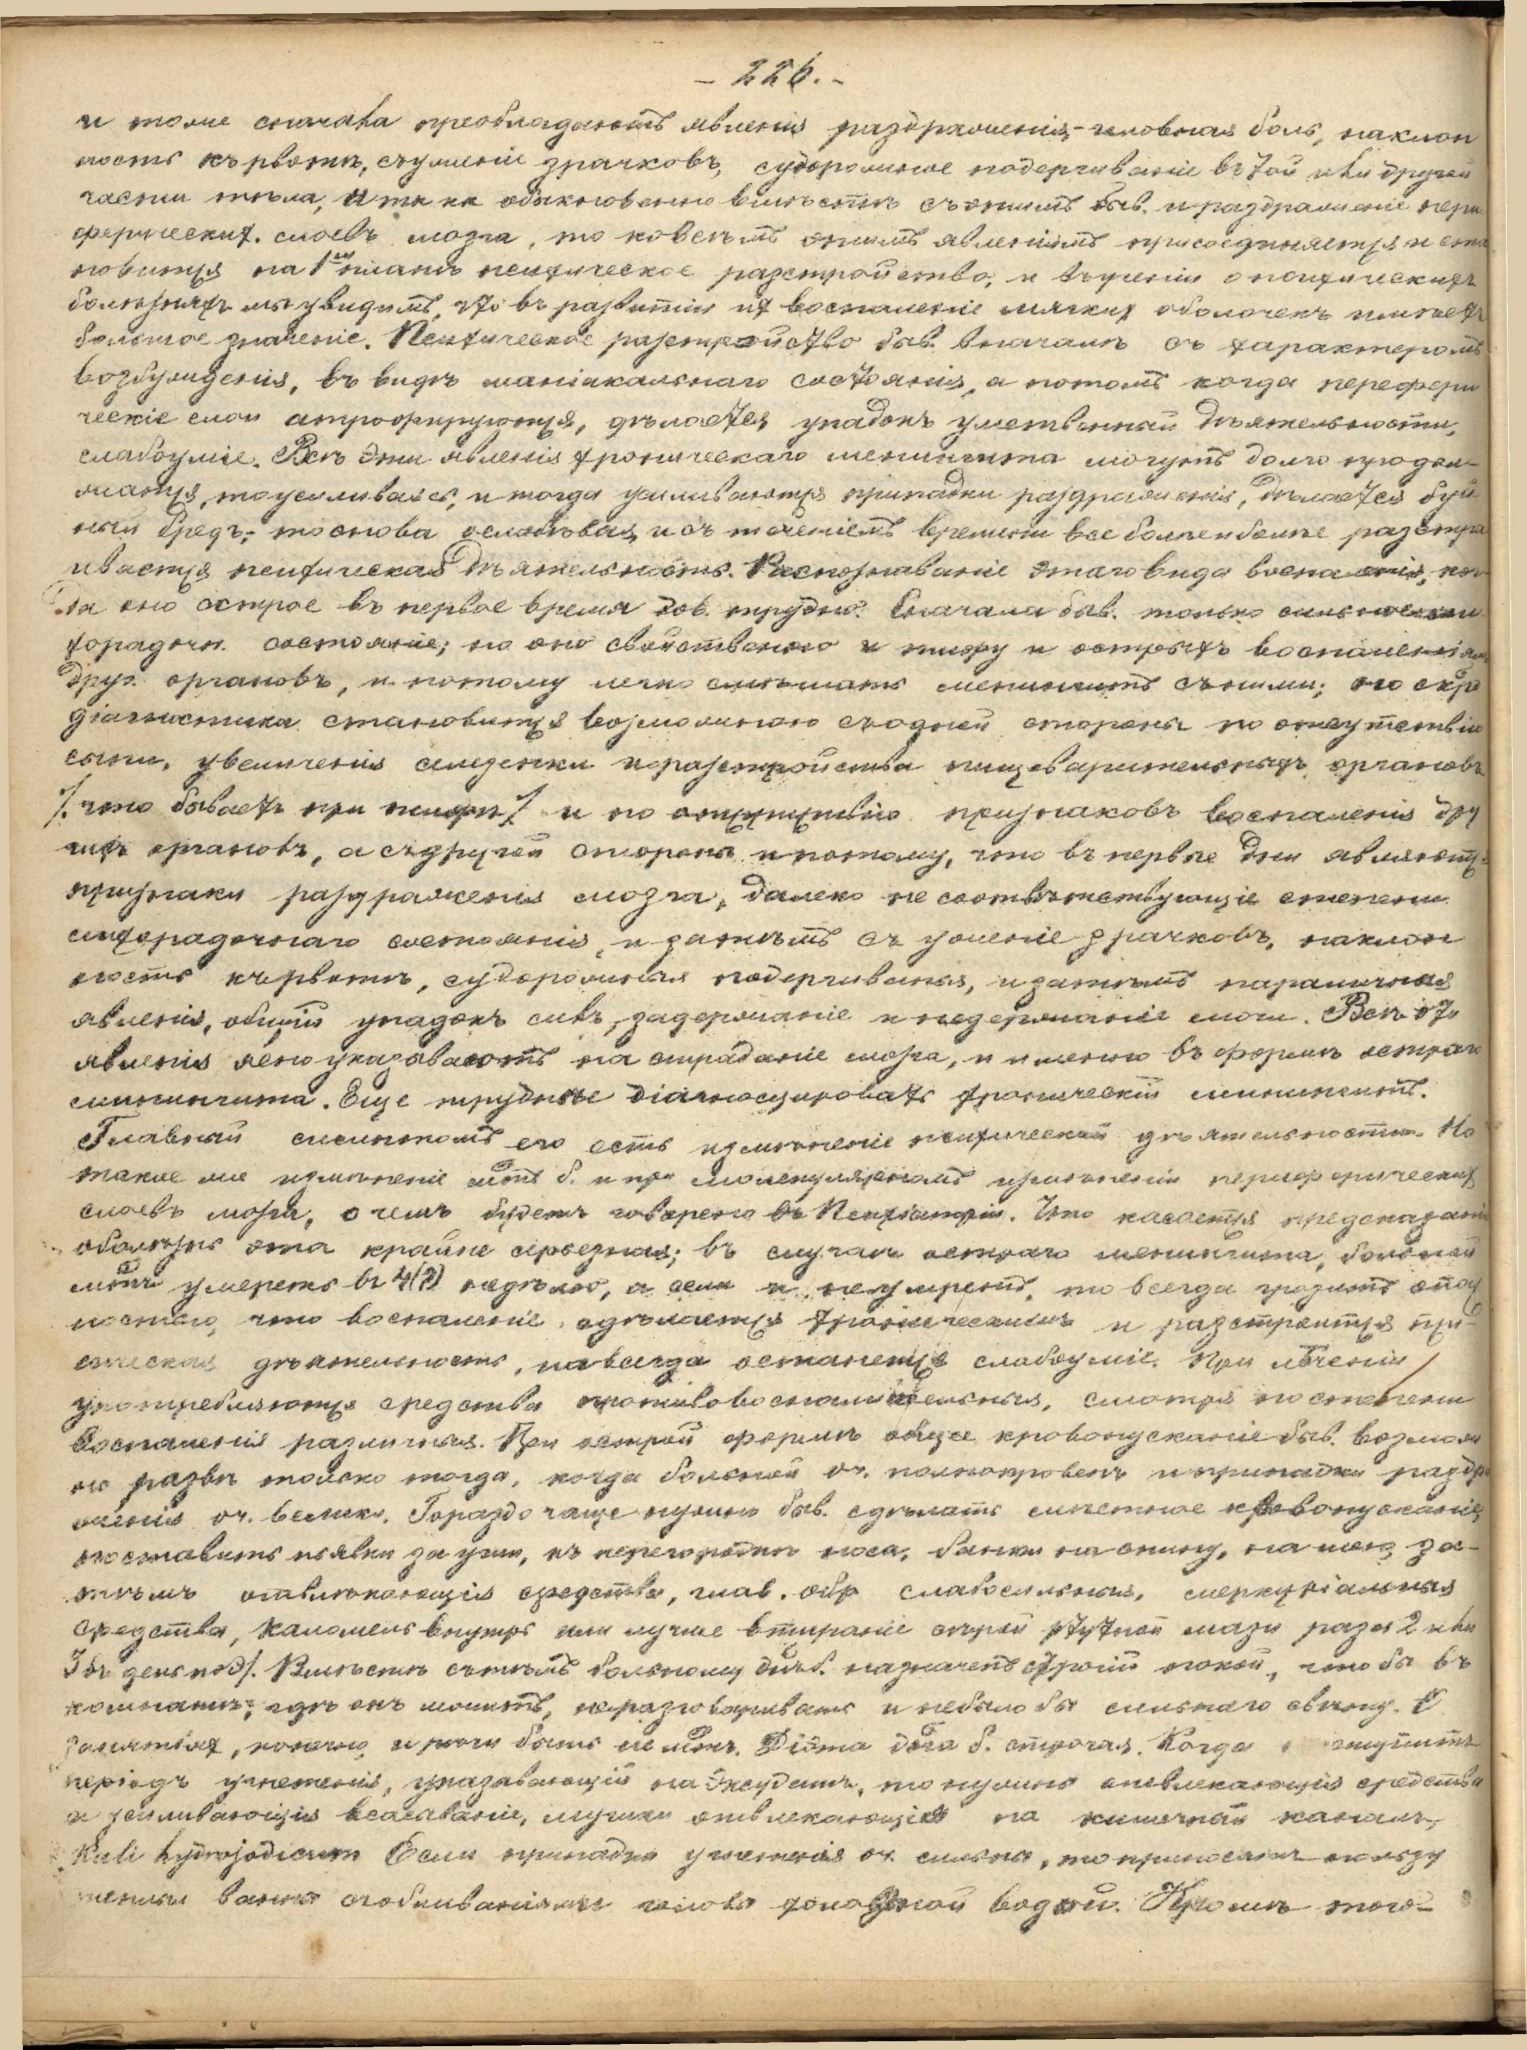 - 226. -
и тоже сначала преобладаютъ явленія раздраженія - головная боль, наклон
ность къ рвотѣ, съуженіе зрачковъ, судорожное подергиваніе въ той или другой
части тѣла, и та къ обыкновенно вмѣстѣ съ этимъ быв. и раздраженіе пери
ферических. слоевъ мозга, то ко всѣмъ этимъ явленіямъ присоединяется и ста
новится на 1ый планъ психическое разстройство, и въ ученіи о психическихъ
болѣзняхъ мы увидимъ, что въ развитіи их воспаленіе мягких оболочекъ имѣетъ
большое значеніе. Психическое разстройство быв. вначалѣ съ характеромъ
возбужденія, въ видѣ маніакальнаго состоянія, а потомъ когда перефери
ческіе слои атрофируются, дѣлается упадокъ умственный дѣятельности,
слабоуміе. Всѣ эти явленія хроническаго менингита могутъ долго продол-
жатся, то усиливаясь, и тогда усиливаются припадки раздраженія, дѣлается буй
ный бредъ; то снова ослабѣвая, и съ теченіемъ времени все болѣе и болѣе разстра
ивается психическая дѣятельность. Распознаваніе этаго вида воспаленія, ког
да оно острое въ первое время дов. трудно. Сначала быв. только сильное ли
хорадочн. состояніе; но оно свойственно и тифу и острымъ воспаленіям
друг. органовъ, и потому легко смѣшать менингитъ съ ними; но скоро
діагностика становится возможною съ одной стороны по отсутствію
сыпи, увеличенія селезенки и разстройства пищеварительныхъ органовъ
/. что бываетъ при тифѣ / и по отсутствію признаковъ воспаленія дру
гихъ органовъ, а съ другой стороны и потому, что въ первые дни являются
признаки раздраженія мозга, далеко не соотвѣтствующіе степени
лихорадочнаго состоянія, и затѣмъ съ уженіе зрачковъ, наклон
ность къ рвотѣ, судорожныя подергиванья, и затѣмъ параличныя
явленія, общій упадокъ силъ, задержаніе и недержаніе мочи. Всѣ эти
явленія ясно указываютъ на страданіе мозга, и именно въ формѣ острого
менингита. Еще труднѣе діагносцировать хроническій менингитъ.
Главный симптомъ его есть измѣненіе психической дѣятельности. Но
такое же измѣненіе мтъ б. и при молекулярномъ измѣненіи периферических
слоевъ мозга, о чемъ будетъ говорено въ Психіатріи. Что касается предсказанія
болѣзнь эта крайне серьезная; въ случаѣ остраго менингита, больной
мтъ умереть въ 4(?) недѣлю, а если и не умретъ, то всегда грозитъ опас
ностью, что воспаленіе сдѣлается хроническимъ и разстроится пси-
хическая дѣятельность, навсегда останется слабоуміе. При лѣченіи
употребляются средства противовоспалительныя, смотря по степени
воспаленія различныя. При острой формѣ общее кровопусканіе быв. возможн
но развѣ только тогда, когда больной оч. полнокровенъ и припадки раздра
женія оч. велики. Гораздо чаще нужно быв. сдѣлать мѣстное кровопусканіе
поставить піявки за уши, къ перегородкѣ носа, банки на спину, на шею, за-
тѣмъ отвлекающія средства, глав. обр слабосильныя, меркуріальныя
средства, каломель внутрь или лучше втираніе сѣрой ртутной мази раза 2 или
3 въ день по Э/. Вмѣстѣ съ тѣмъ больному дѣб. назначенъ строгій покой, что бы въ
комнатѣ, гдѣ онъ лежитъ, не разговаривать и небыло бы сильнаго свѣту. О
занятіях, конечно и рѣчи быть не мтъ. Діэта дна б. строгая. Когда наступитъ
періодъ угнетенія, указывающій на экссудатъ, то нужны отвлекающія средства
и усиливающія всасываніе, лучше отвлекающія на кишечный каналъ,
Kali hydrojodicum Если припадки угнетенія оч. сильны, то приносятъ пользу
теплыя ванны съ обливаніями головы холодной водой. Кромѣ того-